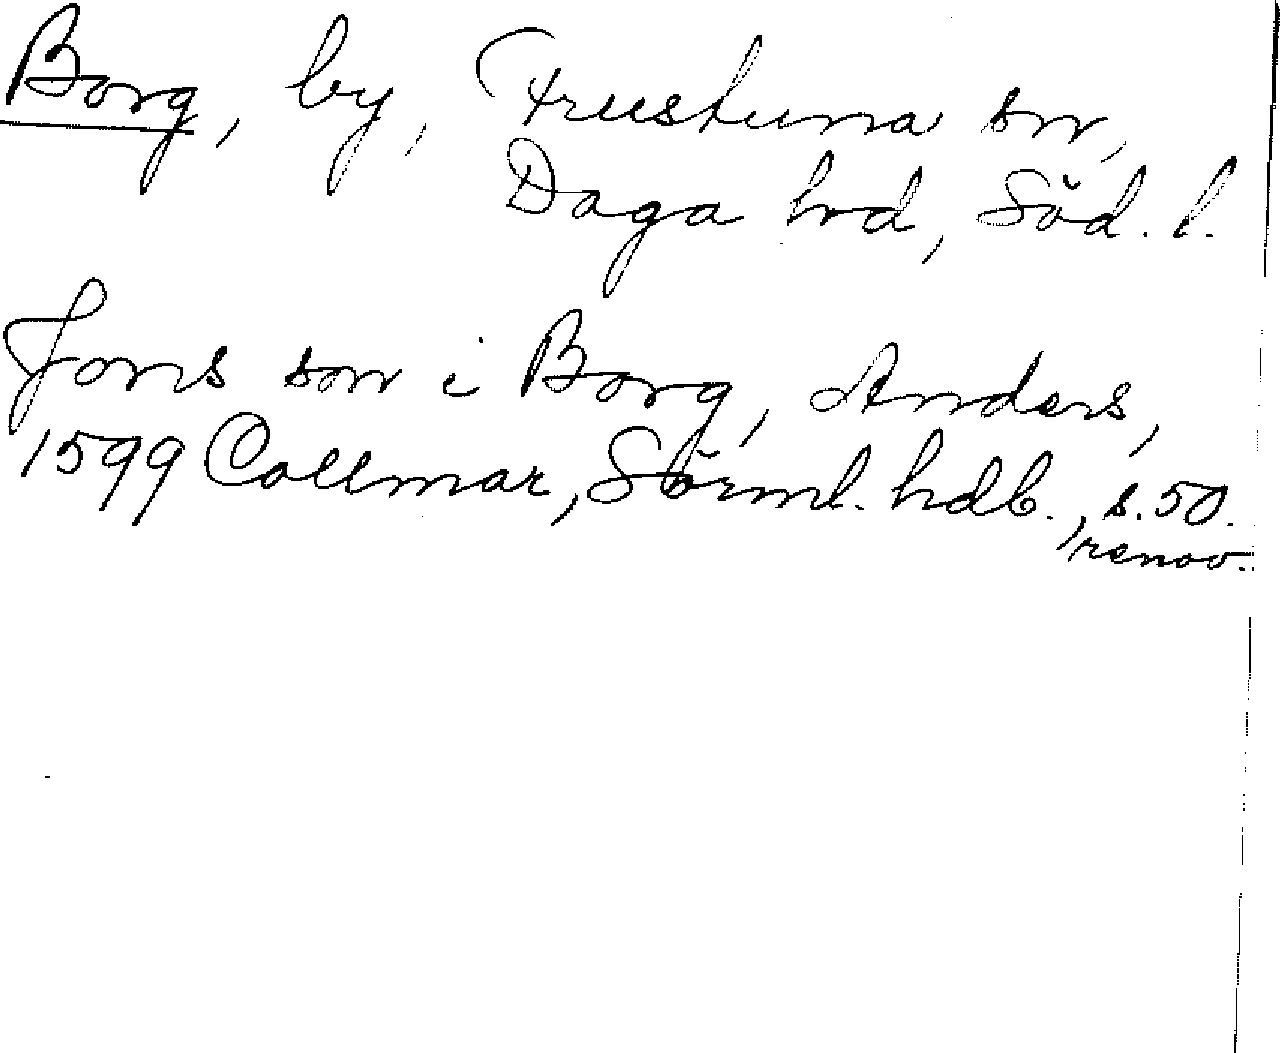 Borg, by, Frustuna sn,
Daga hrd, Söd. l.
Jons son i Borg, Anders,
1599 Collmar, Sörml. hdb., s. 50.
renov.